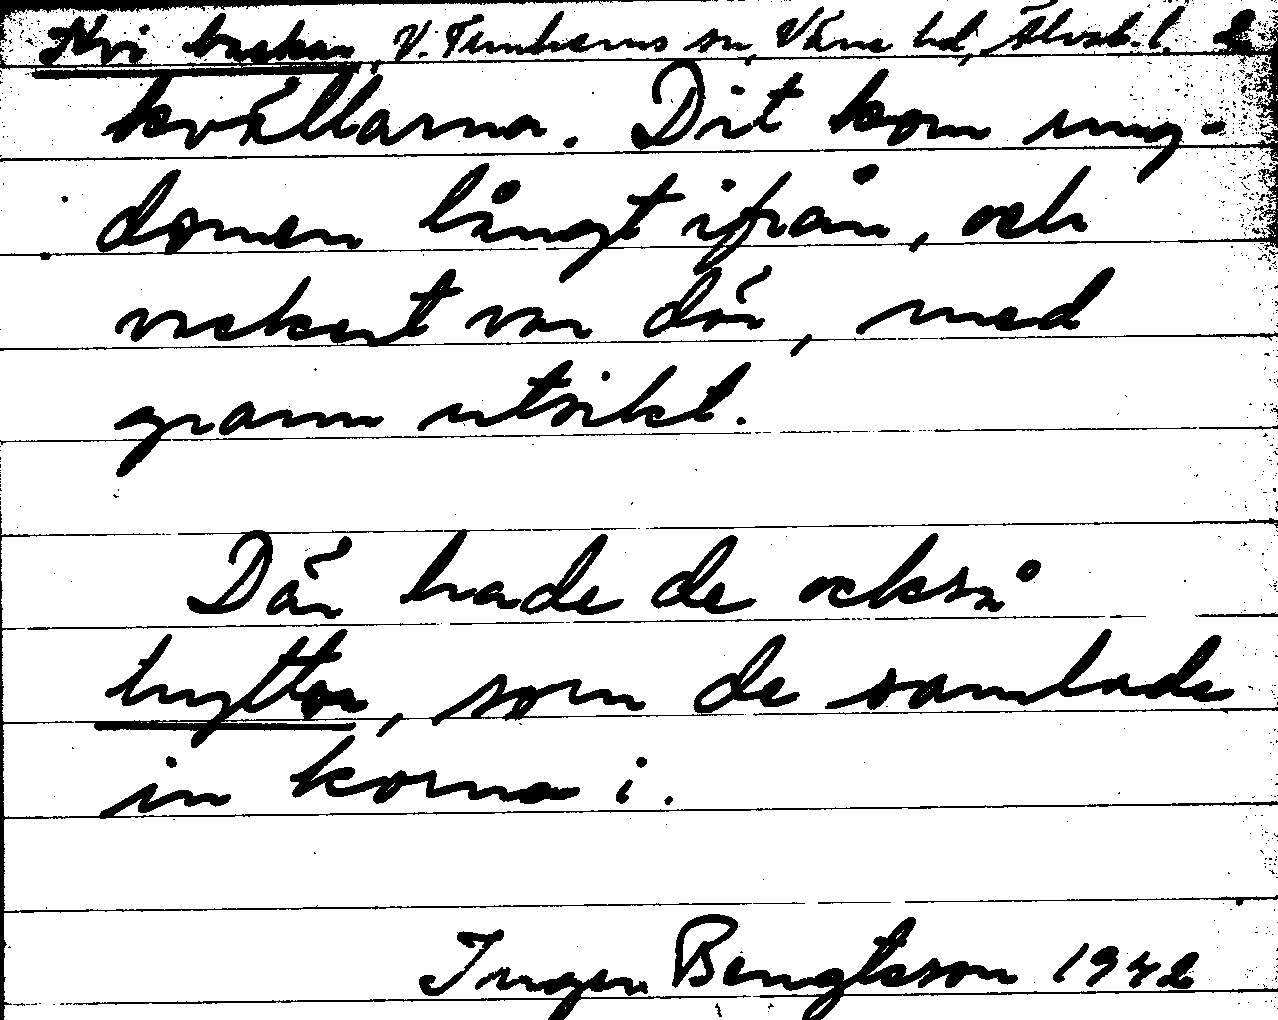 Kvi backen, V. Tunhems sn, Väne hd, Älvsb. l. 2
kvällarna. Dit kom ung-
domen långt ifrån, och
vackert var där, med
grann utsikt.
Där hade de också
hyttor, som de samlade
in korna i.
Inger Bengtsson 1942